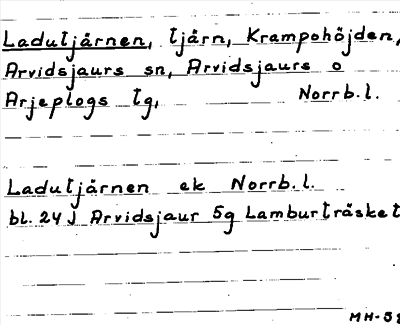 Ladutjärnen, tjärn, Krampohöjden,
Arvidsjaurs sn, Arvidsjaurs o
Arjeplogs tg, Norrb.l.
Ladutjärnen ek Norrb.l.
bl. 24J Arvidsjaur 5g Lamburträsket
MH-